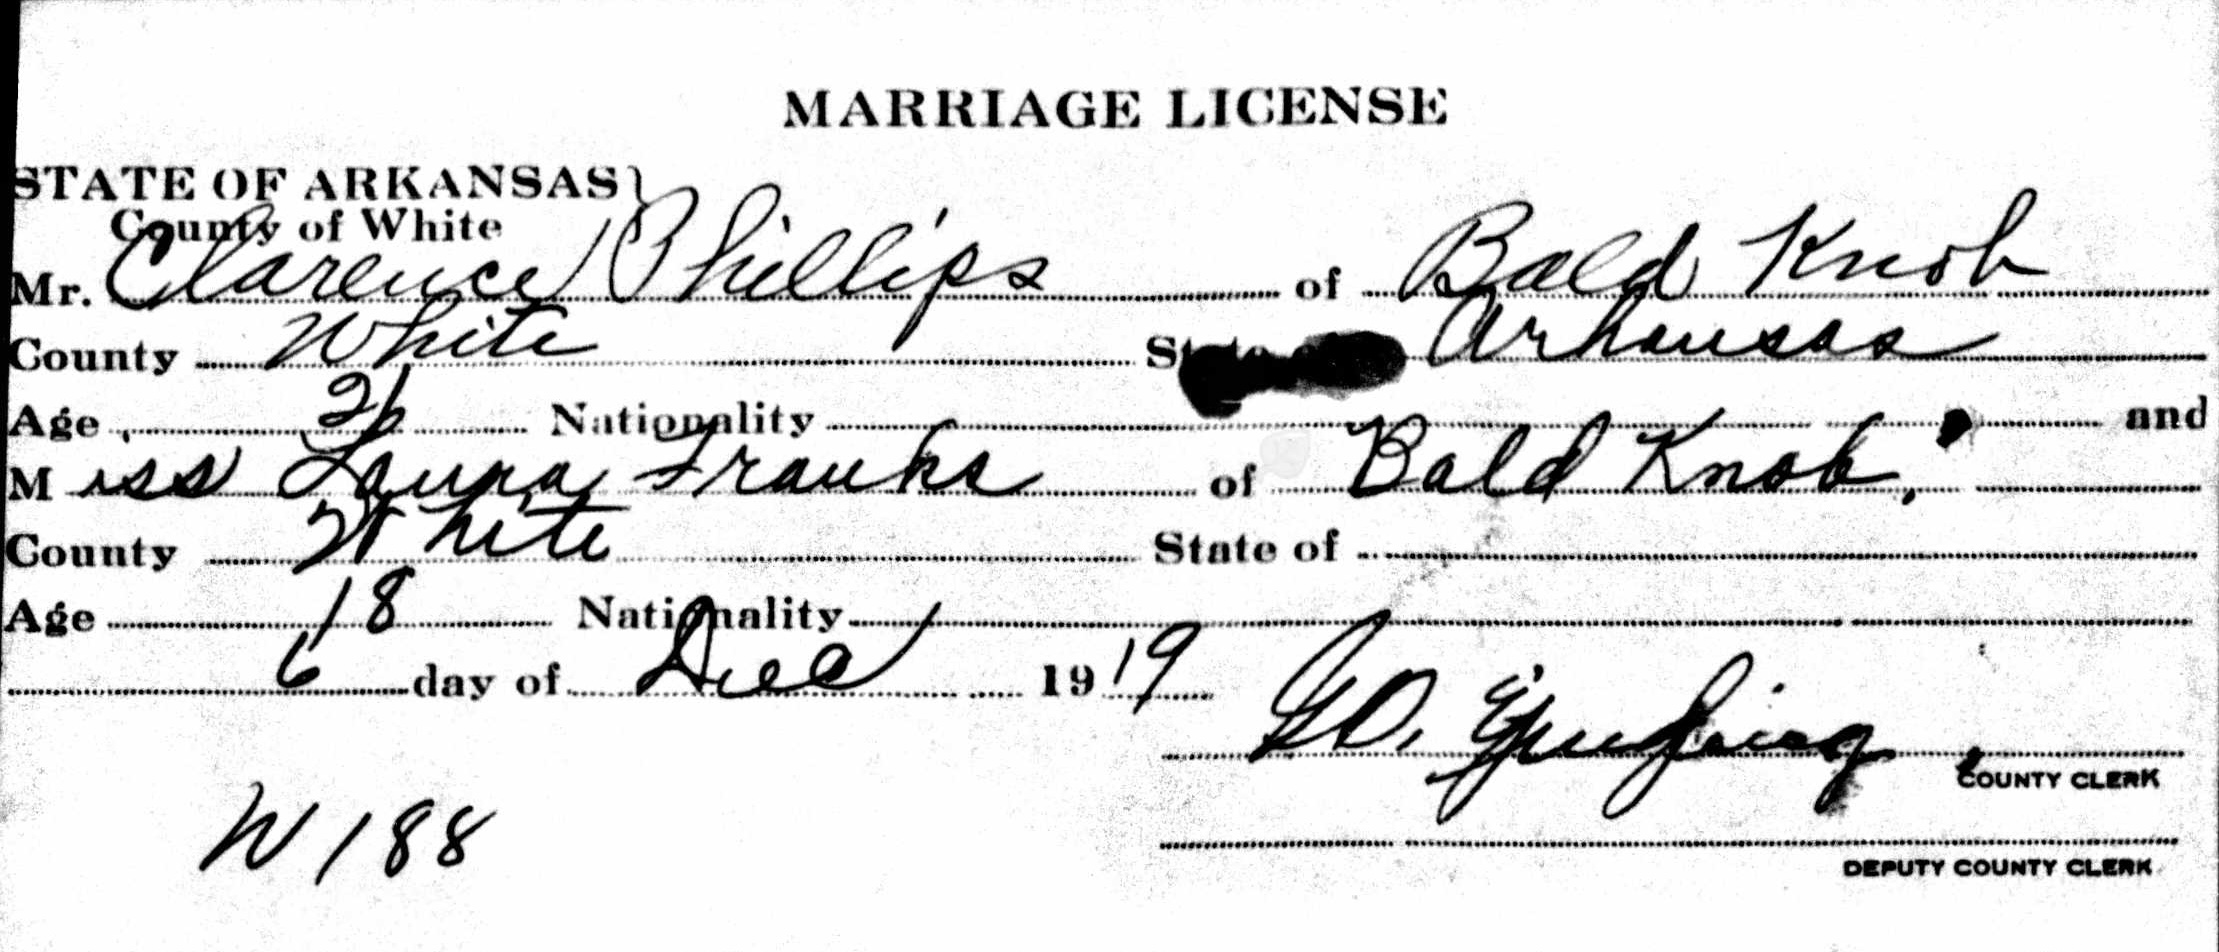 MARRIAGE LICENSE
STATE OF ARKANSAS}
County of White
Mr. Clarence Phillips of Bald Knob
County White State Arkansas
Age 26 Nationality and
Miss Laura Franks of Bald Knob,
County White State of
Age 18 Nationality
6 day of Dec 1919
COUNTY CLERK
W 188
DEPUTY COUNTY CLERK